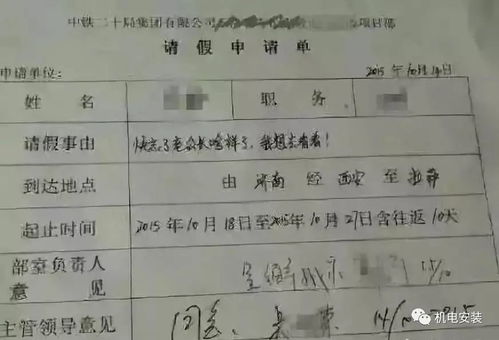 中铁二十局集团有限公司 项目部
请假申请单
申请单位: 2015年10月14日
姓名 职务
请假事由 快忘了老公长啥样了,我想去看看!
到达地点 由 济南 经 西安 至
起止时间 2015年10月18日至2015年10月27日含往返10天
部室负责人意见 15/10
主管领导意见 同意
机电安装